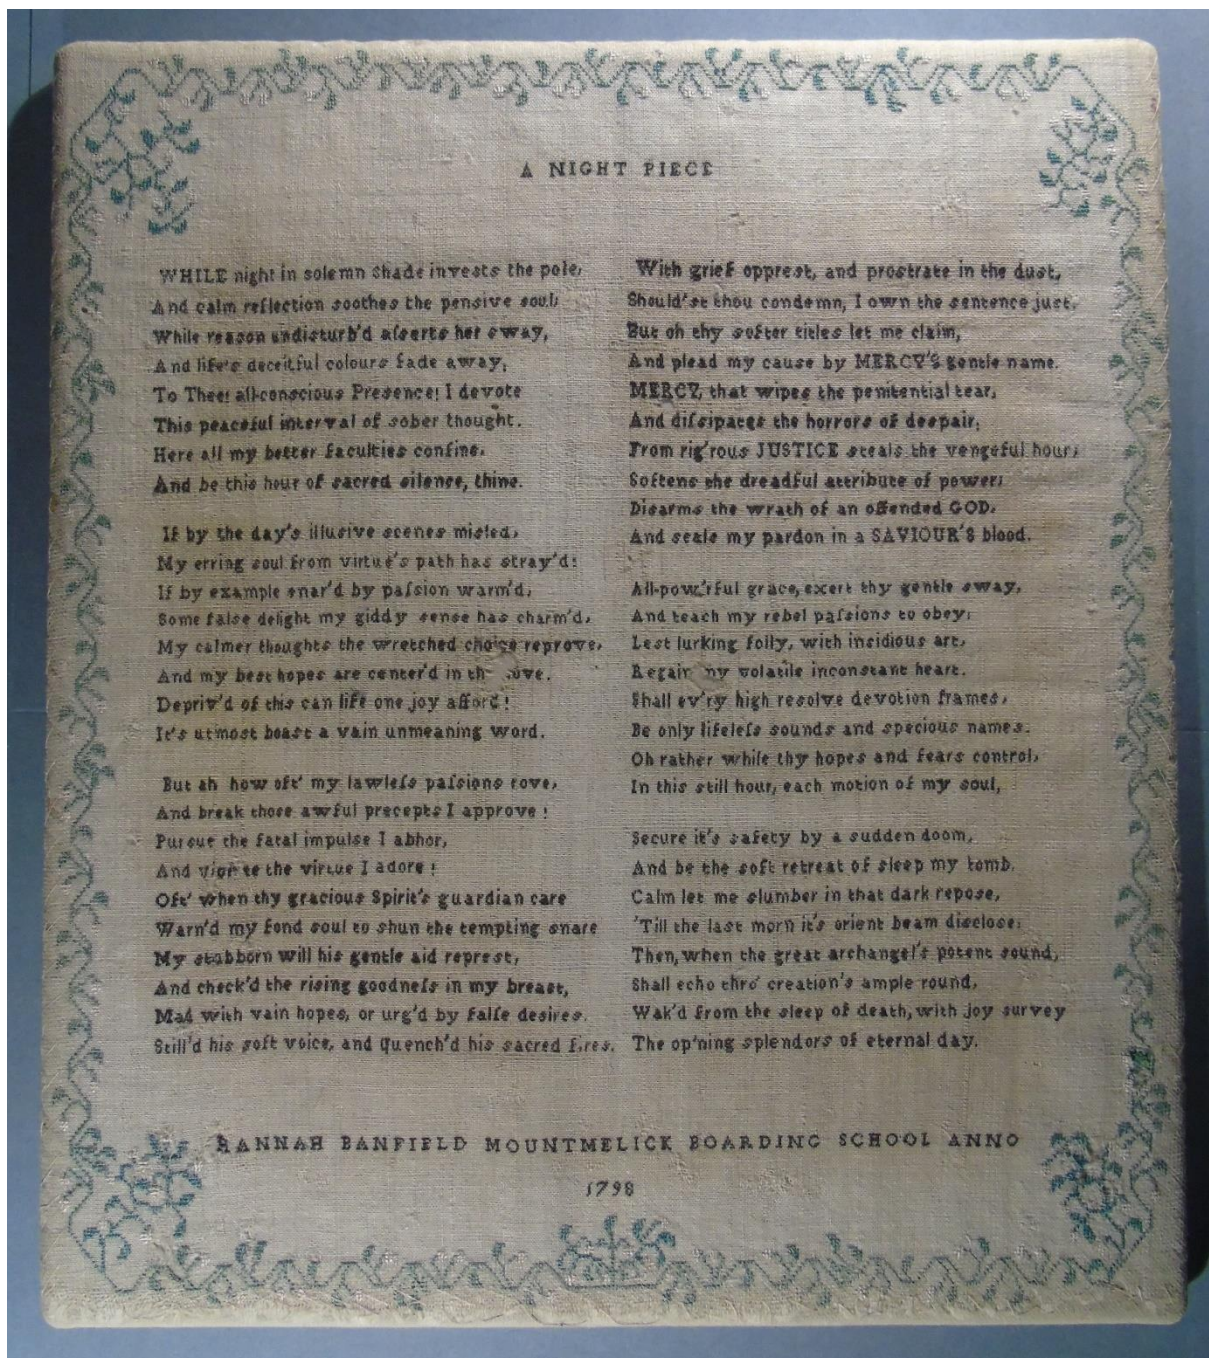 A NIGHT PIECE
WHILE night in solemn shade invests the pole,
And calm reflection soothes the pensive soul;
While reason undisturb'd aſserts her sway,
And life's deceitful colours fade away,
To Thee! all-conscious Presence! I devote
This peaceful interval of sober thought.
Here all my better faculties confine,
And be this hour of sacred silence, thine.
If by the day's illusive scenes misled,
My erring soul from virtue's path has stray'd:
If by example snar'd by paſsion warm'd,
Some false delight my giddy sense has charm'd,
My calmer thoughts the wretched choice reprove,
And my best hopes are center'd in
Depriv'd of this can life one joy afford!
It's utmost boast a vain unmeaning word.
But ah how oft' my lawleſs paſsions rove,
And break those awful precepts I approve!
Pursue the fatal impulse I abhor,
And the virtue I adore!
Oft' when thy gracious Spirit's guardian care
Warn'd my fond soul to shun the tempting snare
My stubborn will his gentle aid represt,
And check'd the rising goodneſs in my breast,
Mad with vain hopes, or urg'd by falſe desires.
Still'd his soft voice, and quench'd his sacred fires.
With grief opprest, and prostrate in the dust,
Should'st thou condemn, I own the sentence just.
But oh thy softer titles let me claim,
And plead my cause by MERCY'S gentle name.
MERCY, that wipes the penitential tear,
And diſsipates the horrors of despair,
From rig'rous JUSTICE steals the vengeful hour,
Softens the dreadful attribute of power;
Disarms the wrath of an offended GOD,
And seals my pardon in a SAVIOUR'S blood.
All-pow'rful grace, exert thy gentle sway,
And teach my rebel paſsions to obey;
Lest lurking folly, with insidious art,
Regain my volatile inconstant heart.
Shall ev'ry high resolve devotion frames,
Be only lifeleſs sounds and specious names.
Oh rather while thy hopes and fears control,
In this still hour, each motion of my soul,
Secure it's safety by a sudden doom,
And be the soft retreat of sleep my tomb.
Calm let me slumber in that dark repose,
'Till the last morn it's orient beam disclose:
Then, when the great archangel's potent sound,
Shall echo thro' creation's ample round,
Wak'd from the sleep of death, with joy survey
The op'ning splendors of eternal day.
HANNAH BANFIELD MOUNTMELICK BOARDING SCHOOL ANNO
1798